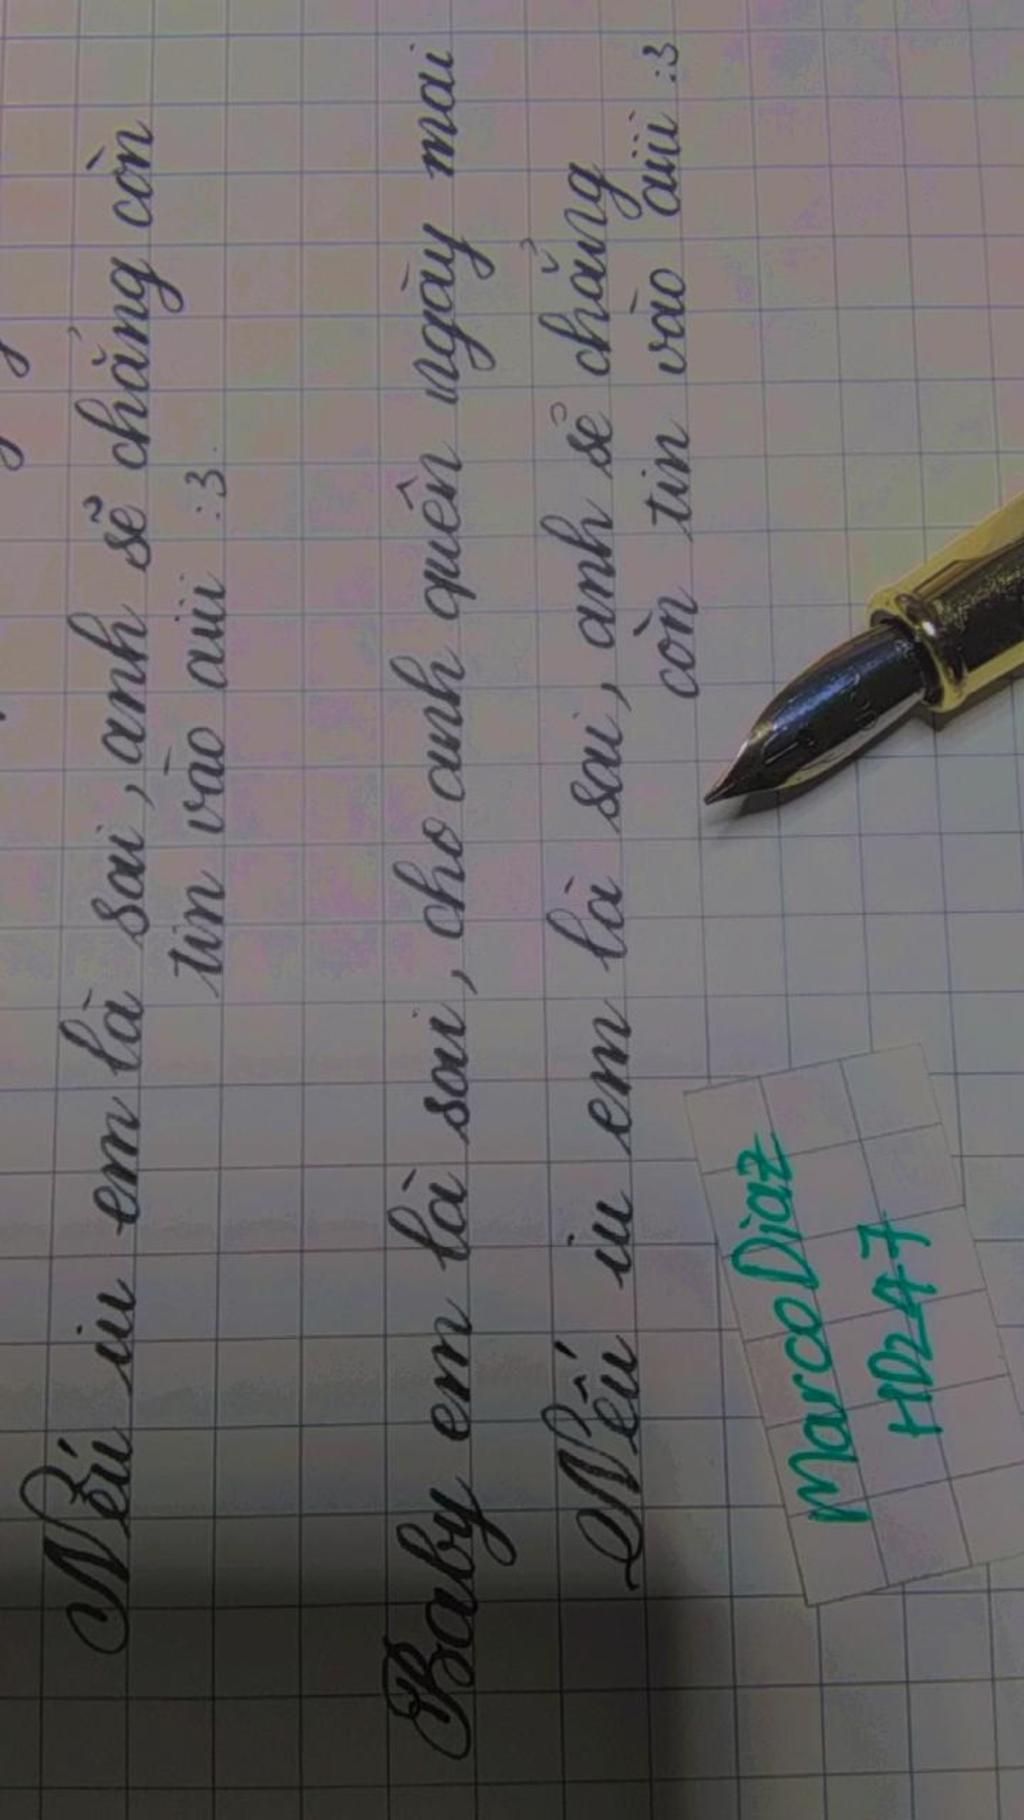 Nếu iu em là sai, anh sẽ chẳng còn
tin vào aiii :3
Baby em là sai, cho anh quên ngày mai
Nếu iu em là sai, anh sẽ chẳng
còn tin vào aiii :3
MarcoDiaz
HD247